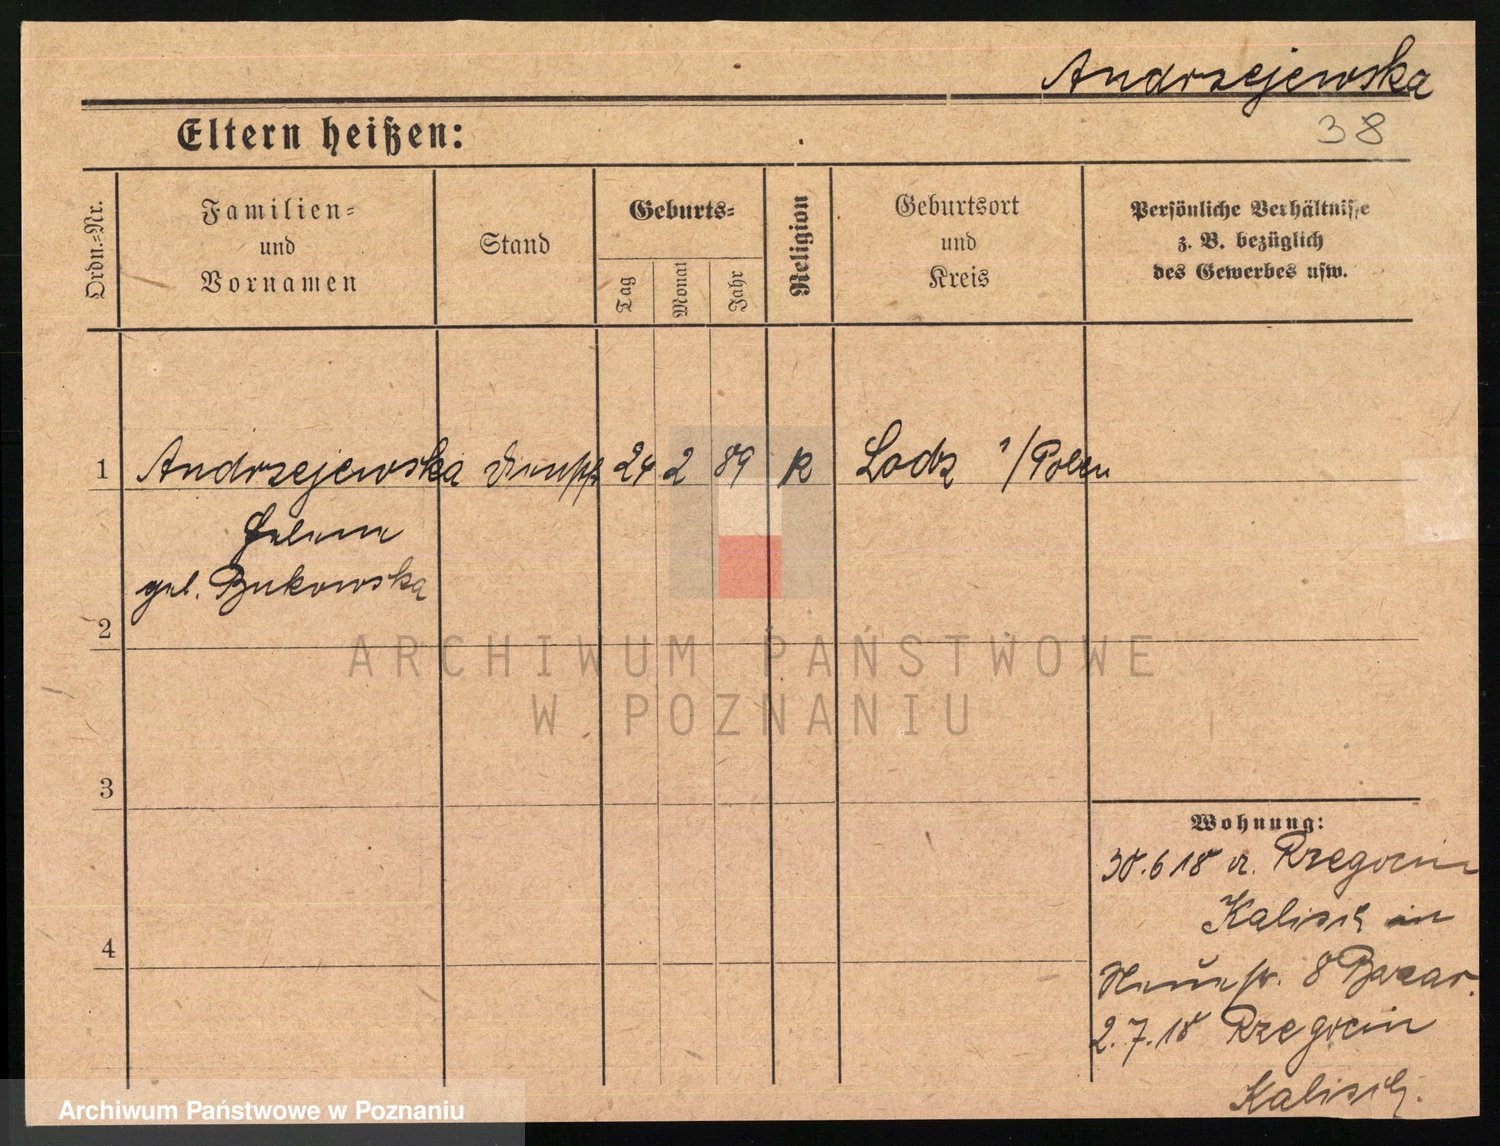 Andrzejewska
38
Eltern heißen:
Ordn.=Nr.
Familien=
und
Vornamen
Stand
Geburts=
Tag
Monat
Jahr
Religion
Geburtsort
und
Kreis
Persönliche Verhältnisse
z. B. bezüglich
des Gewerbes usw.
1 Andrzejewska 24 2 89 K Lodz i/Polen
Helene
geb. Bukowska
2
ARCHIWUM PAŃSTWOWE
W POZNANIU
3
4
Wohnung:
30.6 18 v. Rzegocin
Kalisch in
8 Bazar.
2.7.18 Rzegocin
Kalisch.
Archiwum Państwowe w Poznaniu